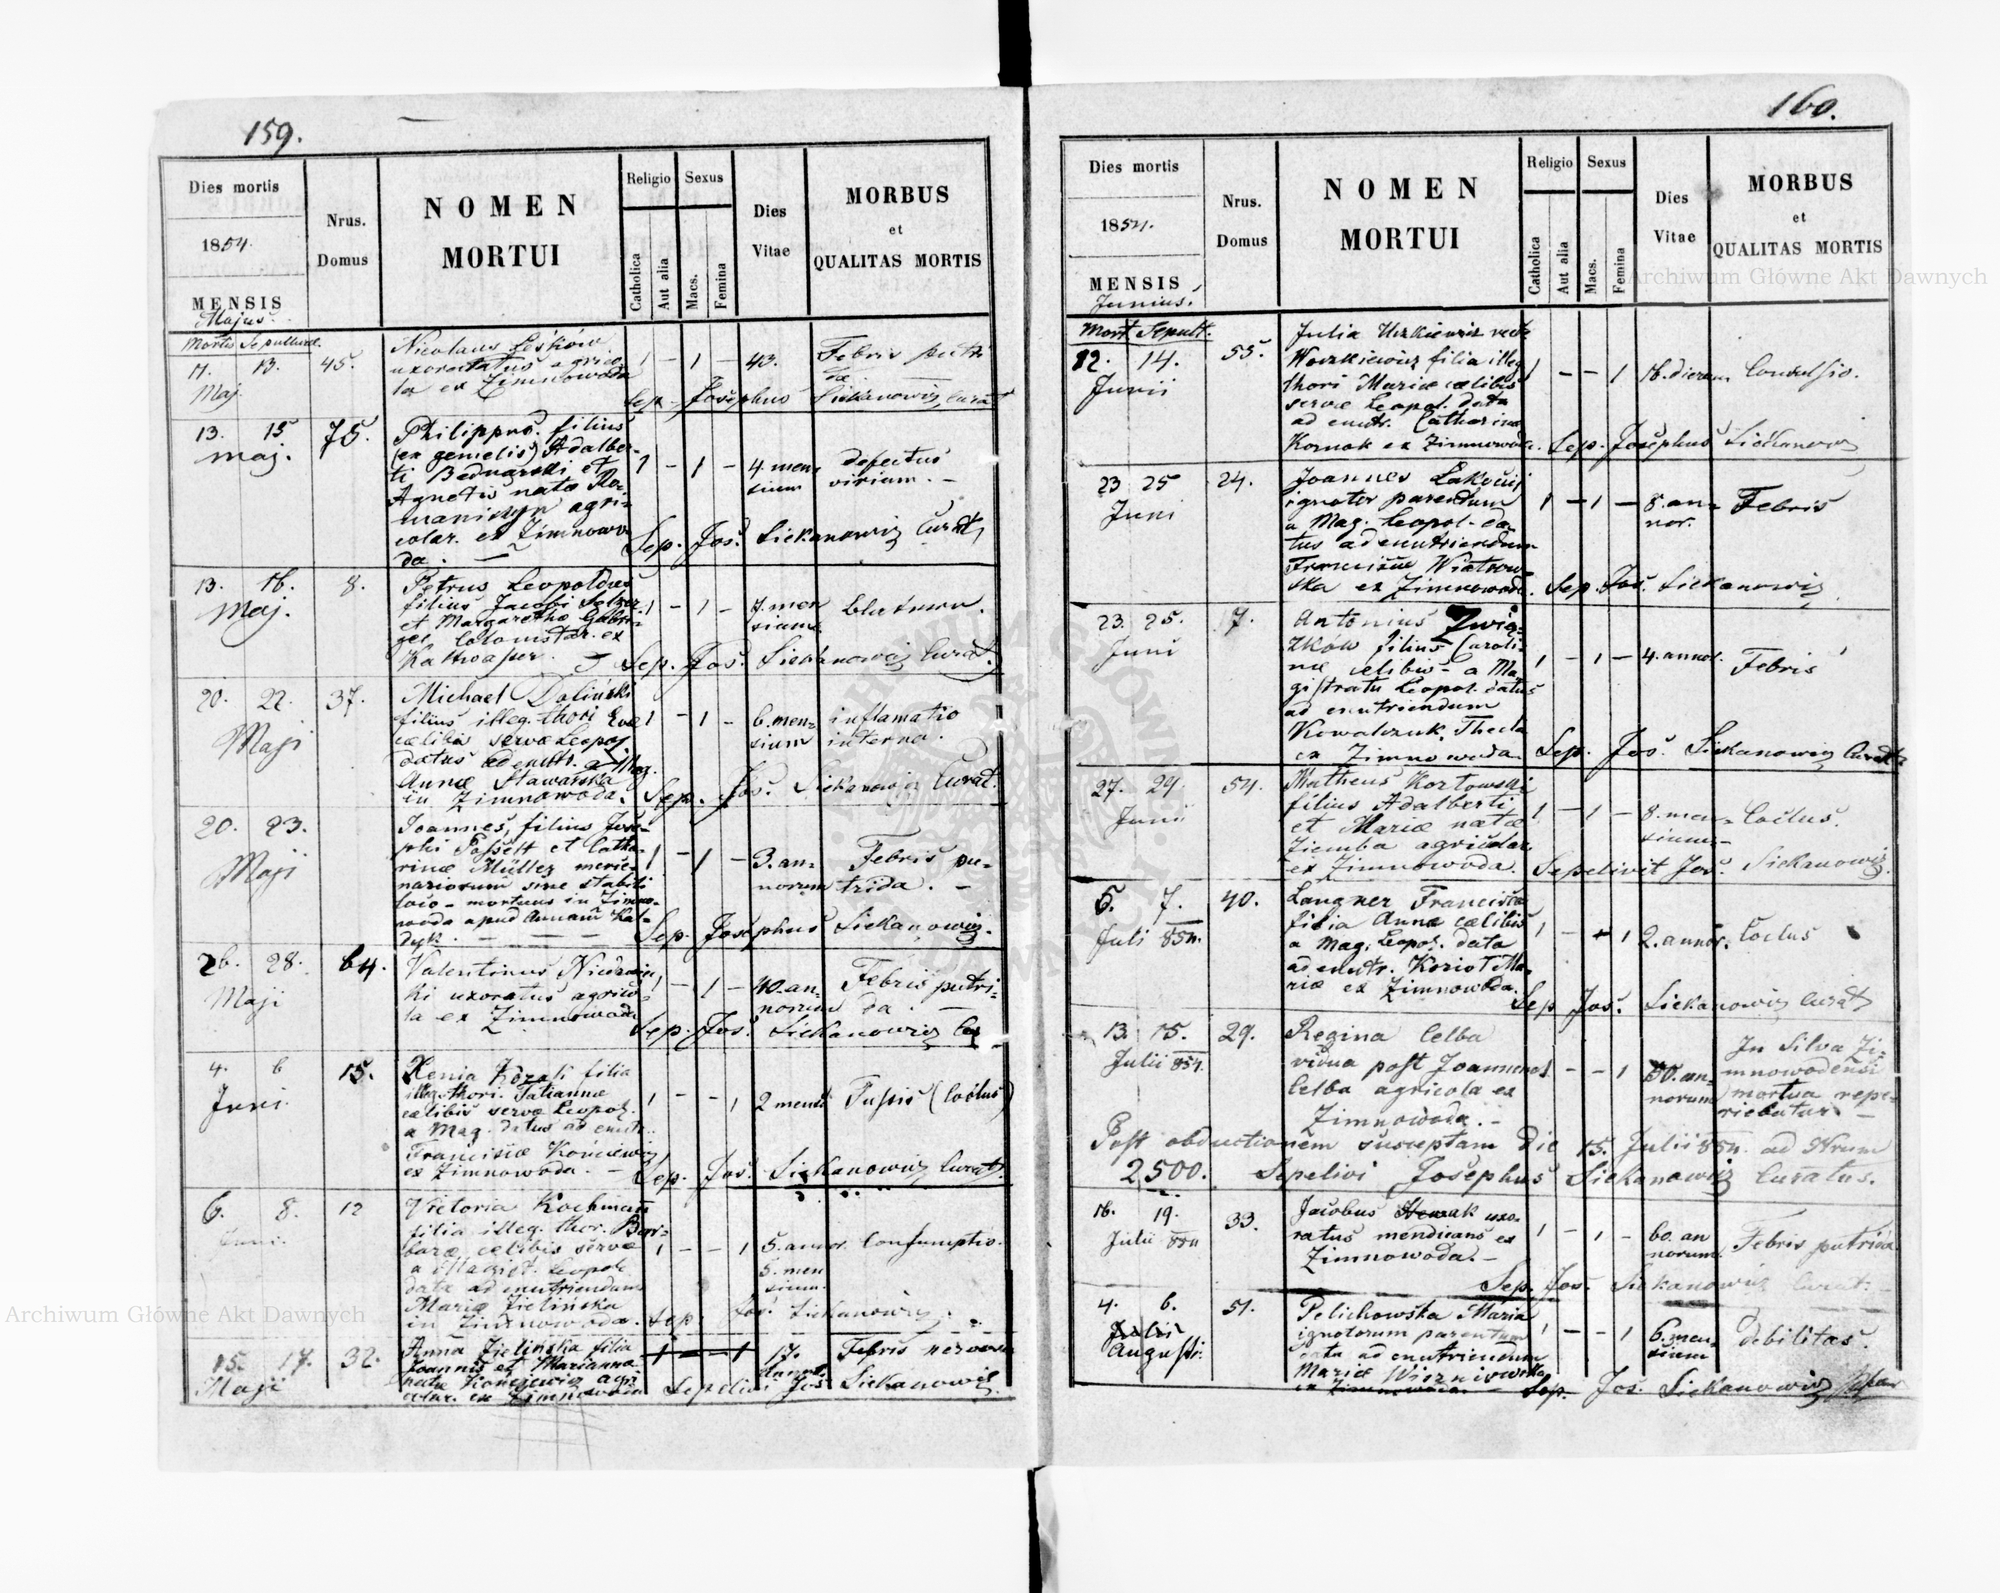 159.
Dies mortis
1854.
MENSIS
Majus.
Nrus.
Domus
NOMEN
MORTUI
Religio
Catholica
Aut alia
Sexus
Macs.
Femina
Dies
Vitae
MORBUS
et
QUALITAS MORTIS
Mortis Sepulturae.
11. 13. 45.
Maj.
Nicolaus Leśków
uxoratus agrico
la ex Zimnowoda
1 - 1 - 43.
Febris putri
da
Sep. Josephus Siekanowicz Curat
13. 15 75.
Maj.
Philippus. filius
(ex gemelis) Adalber-
ti Bednarski et
Agnetis natae Ro-
manicyn agri-
colar. ex Zimnowo
da.
1 - 1 - 4. men
sium
defectus
virium. -
Sep. Jos. Siekanowicz Curat
13. 16. 8.
Maj.
Petrus Leopoldus
filius Jacobi
et Margarethae
Colonistar. ex
Kaltwasser.
1 - 1 - 7. men
sium.
Sep. Jos. Siekanowicz Curat.
20. 22. 37.
Maji
Michael Doliński
filius illeg. thori Evae
caelibis servae Leopol
datus ad enutr. a Mag.
Annae Stawarska
in Zimnowoda.
1 - 1 - 6. men-
sium
inflamatio
interna.
Sep. Jos. Siekanowicz Curat.
20. 23.
Maji
Joannes, filius Jose-
phi Passett et Catha-
rinae Müller merce-
nariorum sine stabili
loco - mortuus in Zimno-
woda apud Annam Kal-
dyk.
1 - 1 - 3. an-
norum
Febris pu-
trida. -
Sep. Josephus Siekanowicz.
26. 28. 64.
Maji
Valentinus
ki uxoratus agrico
la ex Zimnowoda
1 - 1 - 40. an-
norum
Febris putri-
da
Sep. Jos. Siekanowicz Cur
4. 6 15.
Juni.
Xenia Kozak filia
illeg. thori. Tatiannae
caelibis servae Leopol.
a Mag. datus ad enutr.
Francisiae Końciewicz
ex Zimnowoda. -
1 - - 1 2 mens.
Tussis (Coctus)
Sep. Jos. Siekanowicz Curat.
6. 8. 12
Juni.
Victoria Kochman
filia illeg. thor. Bar-
barae caelibis servae
a Magist. Leopol.
data ad enutriendum
Mariae Zielińska
in Zimnowoda.
1 - - 1 5. annor.
5. men
sium.
Consumptio.
Sep. Jos. Siekanowicz.
15. 17. 32.
Maji
Anna Zielińska filia
Joannis et Marianna
natae Końciewicz agri
colar. ex Zimnowoda
1 - - 1 17.
Febris nervosa
Sepelivi Jos. Siekanowicz.
160.
Dies mortis
1854.
MENSIS
Junius.
Nrus.
Domus
NOMEN
MORTUI
Religio
Catholica
Aut alia
Sexus
Macs.
Femina
Dies
Vitae
MORBUS
et
QUALITAS MORTIS
Mort. Sepult.
12. 14. 55.
Junii
Julia
Woszkiewicz filia illeg
thori Mariae caelibis
servae Leopol. data
ad enutr. Catharinae
Kornak ex Zimnowoda.
1 - - 1 16. dierum
Convulsio.
Sep. Josephus Siekanowicz
23 25 24.
Juni
Joannes
ignotor parentum
a Mag. Leopol. da
tus ad enutriendum
Francisiae Wiatrow
ska ex Zimnowoda.
1 - 1 - 8. an-
nor.
Febris
Sep. Jos. Siekanowicz
23. 25. 17.
Juni
Antonius Zwią-
zków filius Caroli-
nae caelibis - a Ma
gistratu Leopol. datus
ad enutriendum
Kowalczuk Thecla
ex Zimnowoda
1 - 1 - 4. annor.
Febris
Sep. Jos. Siekanowicz Curat.
27. 29. 54.
Junii
Matheus Kozłowski
filius Adalberti
et Mariae natae
Ziemba agricolar
ex Zimnowoda.
1 - 1 - 8. men-
sium.-
Coctus.
Sepelivit Jos. Siekanowicz.
5. 7. 40.
Juli 854.
Langner Francisca
filia Annae caelibis
a Mag. Leopol. data
ad enutr. Koziot Ma-
riae ex Zimnowoda.
1 - - 1 2. annor.
Coctus
Sep Jos. Siekanowicz Curat
13. 15. 29.
Julii 854.
Regina Celba
vidua post Joannem
Celba agricola ex
Zimnowoda. -
1 - - 1 50. an-
norum
In Silva Zi-
mnowodensi
mortua repe-
riebatur -
Post obductionem susceptam Die 15. Julii 854. ad Nrum
2,500. Sepelivi Josephus Siekanowicz Curatus.
16. 19. 33.
Julii 854
Jacobus Nowak uxo-
ratus mendicans ex
Zimnowoda. -
1 - 1 - 60. an
norum
Febris putrida
Sep. Jos. Siekanowicz Curat.
4. 6. 51.
Augusti.
Pelichowska Maria
ignotorum parentum
data ad enutriendum
Mariae Wiszniowska
ex Zimnowoda
1 - - 1 6. men-
sium
debilitas.
Sep. Jos. Siekanowicz
Archiwum Główne Akt Dawnych
Archiwum Główne Akt Dawnych